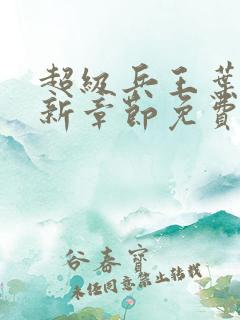 超级兵王葉
新章節免費
谷春寶
未经同意禁止转载